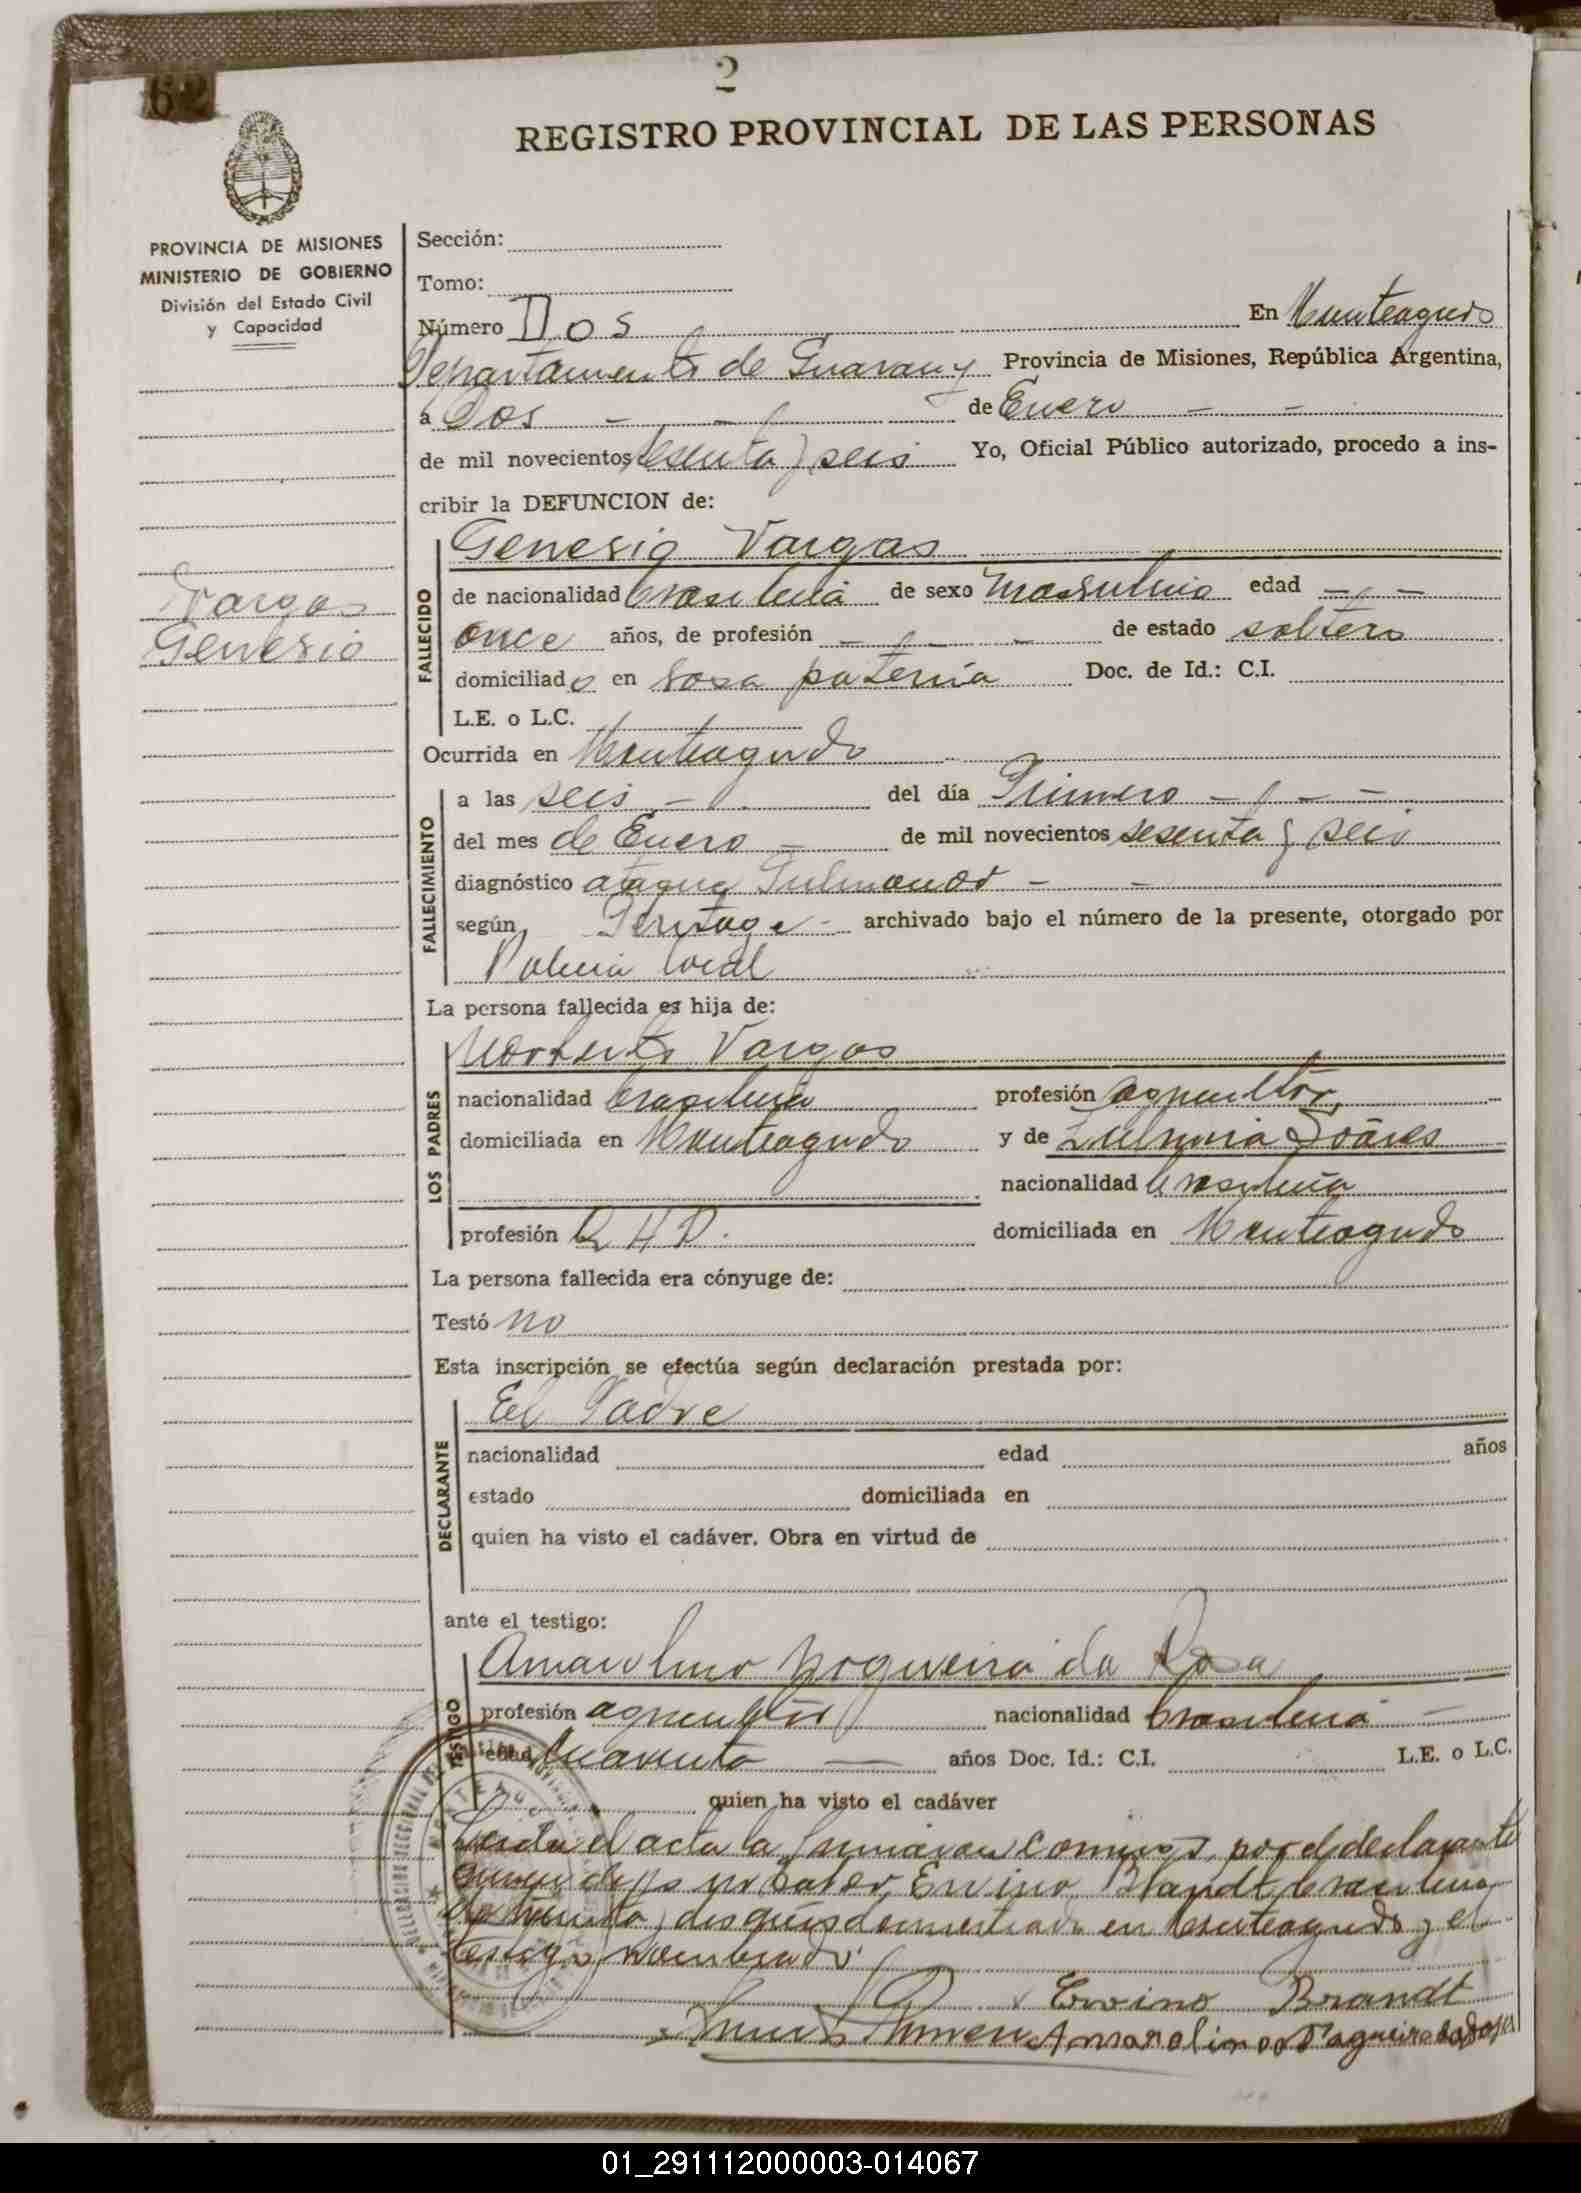 62
2
REGISTRO PROVINCIAL DE LAS PERSONAS
PROVINCIA DE MISIONES
MINISTERIO DE GOBIERNO
División del Estado Civil
y Capacidad
Sección:
Tomo:
Número Dos En Monteagudo
Departamento de Guarany Provincia de Misiones, República Argentina,
a Dos de Enero
de mil novecientos sesenta y seis Yo, Oficial Público autorizado, procedo a ins-
cribir la DEFUNCION de:
Vargas
Genesio
FALLECIDO
Genesio Vargas
de nacionalidad brasileña de sexo masculino edad
once años, de profesión de estado soltero
domiciliado en casa paterna Doc. de Id.: C.I.
L.E. o L.C.
Ocurrida en Monteagudo
FALLECIMIENTO
a las seis del día Primero
del mes de Enero de mil novecientos sesenta y seis
diagnóstico ataque Pulmonar
según Peritage archivado bajo el número de la presente, otorgado por
Policia local
La persona fallecida es hija de:
LOS PADRES
Norberto Vargas
nacionalidad brasileña profesión agricultor
domiciliada en Monteagudo y de Zulmira Soares
nacionalidad brasileña
profesión Q H D. domiciliada en Monteagudo
La persona fallecida era cónyuge de:
Testó no
Esta inscripción se efectúa según declaración prestada por:
DECLARANTE
El Padre
nacionalidad edad años
estado domiciliada en
quien ha visto el cadáver. Obra en virtud de
ante el testigo:
TESTIGO
Amarolino Nogueira da Rosa
profesión agricultor nacionalidad brasileña
edad cuarenta años Doc. Id.: C.I. L.E. o L.C.
quien ha visto el cadáver
Leida el acta la firmaron conmigo, por el declarante
quien dijo no saber, Ervino Brandt brasileño
de treinta y dos años domiciliado en Monteagudo y el
testigo nombrado.
Ervino Brandt
Amarolino Nogueira da Rosa
01_291112000003-014067